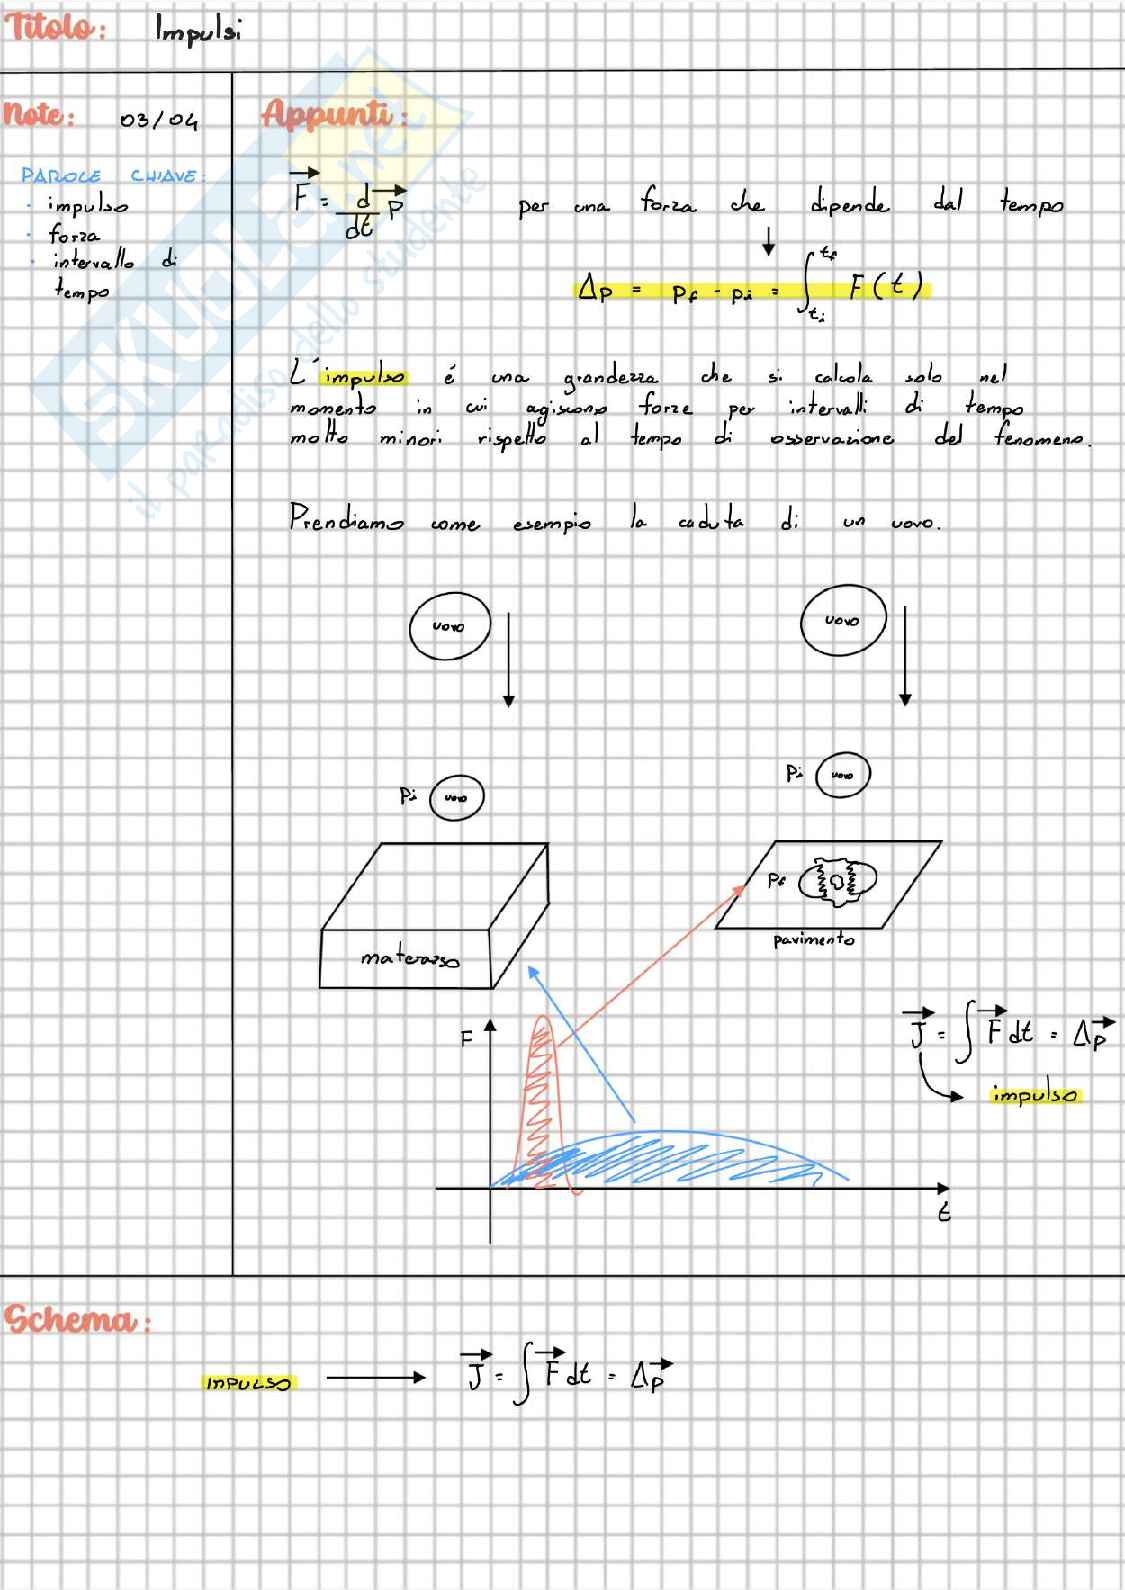 Titolo: Impulsi
Note: 03/04
PAROLE CHIAVE:
· impulso
· forza
· intervallo di
tempo
Appunti:
F = d/dt p per una forza che dipende dal tempo
Δp = pf - pi = ∫ti tf F(t)
L'impulso é una grandezza che si calcola solo nel
momento in cui agiscono forze per intervalli di tempo
molto minori rispetto al tempo di osservazione del fenomeno.
Prendiamo come esempio la caduta di un uovo.
uovo uovo
Pi uovo Pi uovo
materasso
Pf
pavimento
F
t
J = ∫ F dt = Δp
impulso
Schema:
IMPULSO J = ∫ F dt = Δp
SKUOLA.net
il paradiso dello studente